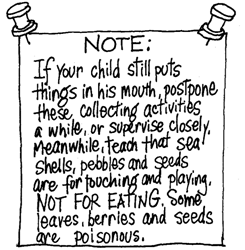 NOTE:
If your child still puts
things in his mouth, postpone
these collecting activities
a while, or supervise closely.
Meanwhile, teach that sea
shells, pebbles and seeds
are for touching and playing,
NOT FOR EATING. Some
leaves, berries and seeds
are poisonous.